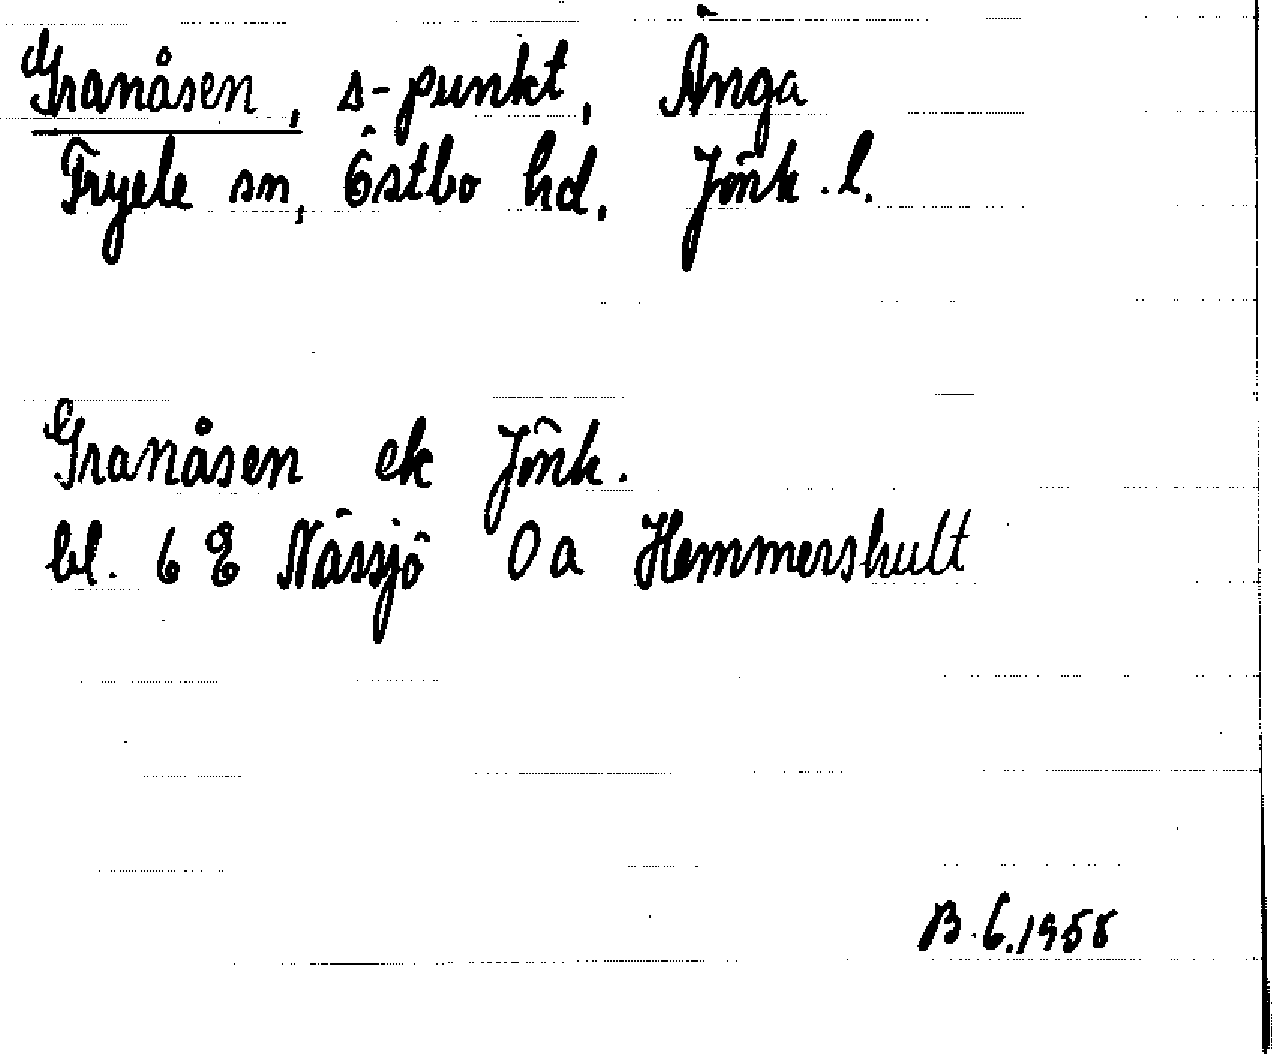 Granåsen, s-punkt, Änga
Fryele sn, Östbo hd. Jönk. l.
Granåsen ek Jönk.
bl. 6 E Nässjö 0 a Hemmershult
B.G. 1958